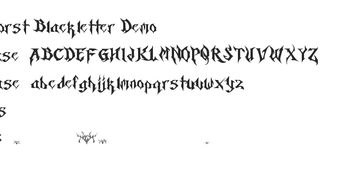 orst Blackletter Demo
se ABCDEFGHIJKLMNOPQRSTUVWXYZ
se abcdefghijklmnopqrstuvwxyz
s